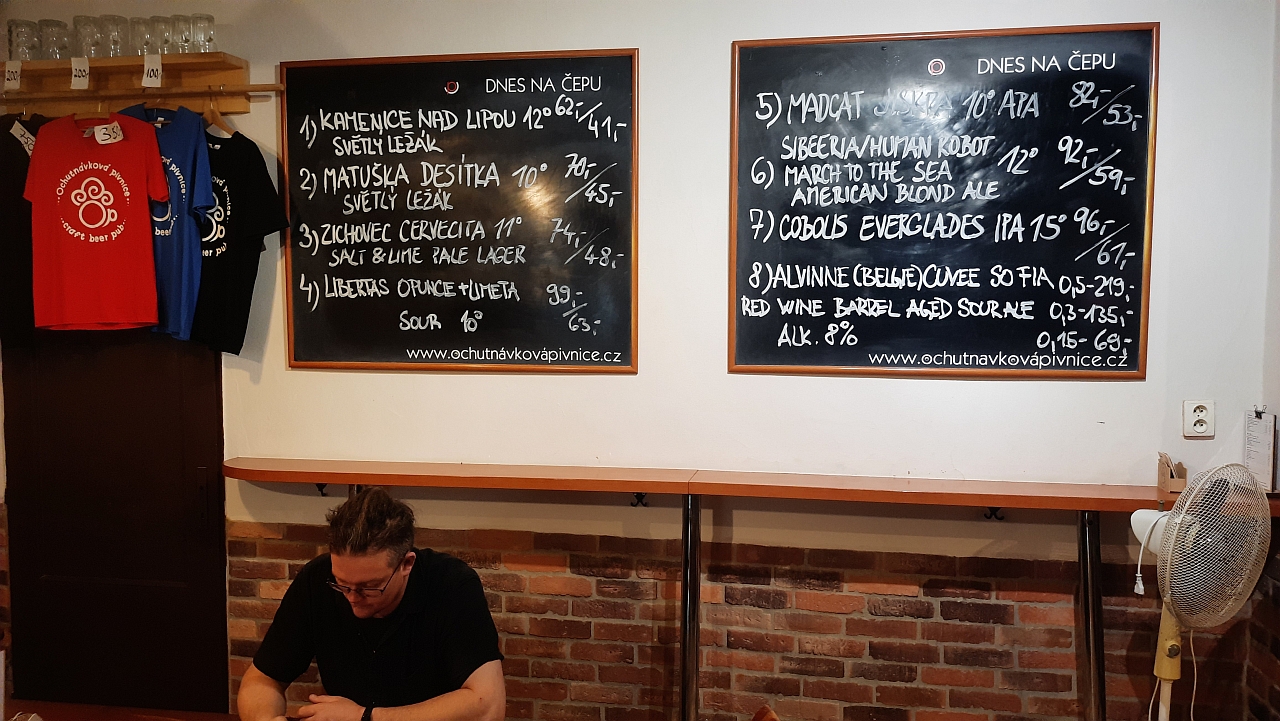 200,-
200,-
100,-
Ochutnávková pivnice
craft beer pub
DNES NA ČEPU
1) KAMENICE NAD LIPOU 12° 62,-/41,-
SVĚTLÝ LEŽÁK
2) MATUŠKA DESÍTKA 10° 70,-/45,-
SVĚTLÝ LEŽÁK
3) ZICHOVEC CERVECITA 11° 74,-/48,-
SALT & LIME PALE LAGER
4) LIBERTAS OPUNCE + LIMETA 99,-/63,-
SOUR 10°
www.ochutnávkovápivnice.cz
DNES NA ČEPU
5) MADCAT JISKRA 10° APA 82,-/53,-
SIBEERIA/HUMAN ROBOT
6) MARCH TO THE SEA 12° 92,-/59,-
AMERICAN BLOND ALE
7) COBOLIS EVERGLADES IPA 15° 96,-/61,-
8) ALVINNE (BELGIE) CUVEE SOFIA 0,5-219,-
RED WINE BARREL AGED SOUR ALE 0,3-135,-
ALK. 8% 0,15-69,-
www.ochutnavkovápivnice.cz